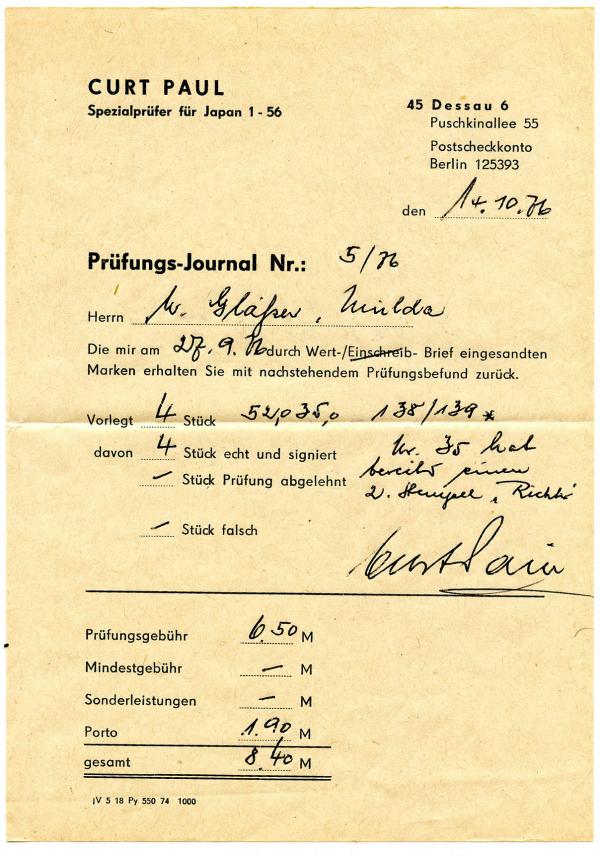 CURT PAUL
Spezialprüfer für Japan 1 - 56
45 Dessau 6
Puschkinallee 55
Postscheckkonto
Berlin 125393
den 14.10.76
Prüfungs-Journal Nr.: 5/76
Herrn W. Gläßer, Milda
Die mir am 27.9.76 durch Wert-/Einschreib- Brief eingesandten
Marken erhalten Sie mit nachstehendem Prüfungsbefund zurück.
Vorlegt 4 Stück 52,035,0 138/139 *
davon 4 Stück echt und signiert Nr. 35 hat
— Stück Prüfung abgelehnt bereits einen
2. Stempel, Richter
— Stück falsch
Curt Paul
Prüfungsgebühr 6.50 M
Mindestgebühr — M
Sonderleistungen — M
Porto 1.90 M
gesamt 8.40 M
JV 5 18 Py 550 74 1000